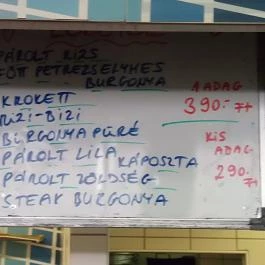 PÁROLT RIZS
FŐTT PETREZSELYMES
BURGONYA
KROKETT
RIZI-BIZI
BURGONYA PÜRÉ
PÁROLT LILA KÁPOSZTA
PÁROLT ZÖLDSÉG
STEAK BURGONYA
1 ADAG
390.- Ft
KIS
ADAG
290.- Ft